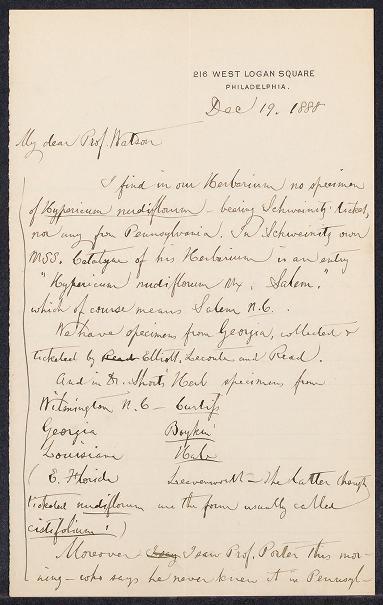 216 WEST LOGAN SQUARE
PHILADELPHIA.
Dec 19. 1888
My dear Prof. Watson
I find in our Herbarium no specimen
of Hypericum nudiflorum – bearing Schweinitz' ticket,
nor any from Pennsylvania. In Schweinitz own
MSS. Catalogue of his Herbarium is an entry
"Hypericum nudiflorum Mx, Salem."
which of course means Salem N.C.
We have specimens from Georgia, collected &
ticketed by Read Elliott, Leconte and Read.
And in Dr. Short's Herb specimens from
Wilmington N.C – Curtiss
Georgia Boykin
Louisiana Hale
( E. Florida Leavenworth – the latter though
ticketed nudiflorum are the form usually called
cistifolium! )
Moreover I saw Prof. Porter this mor-
ning – who says he never knew it in Pennsyl-